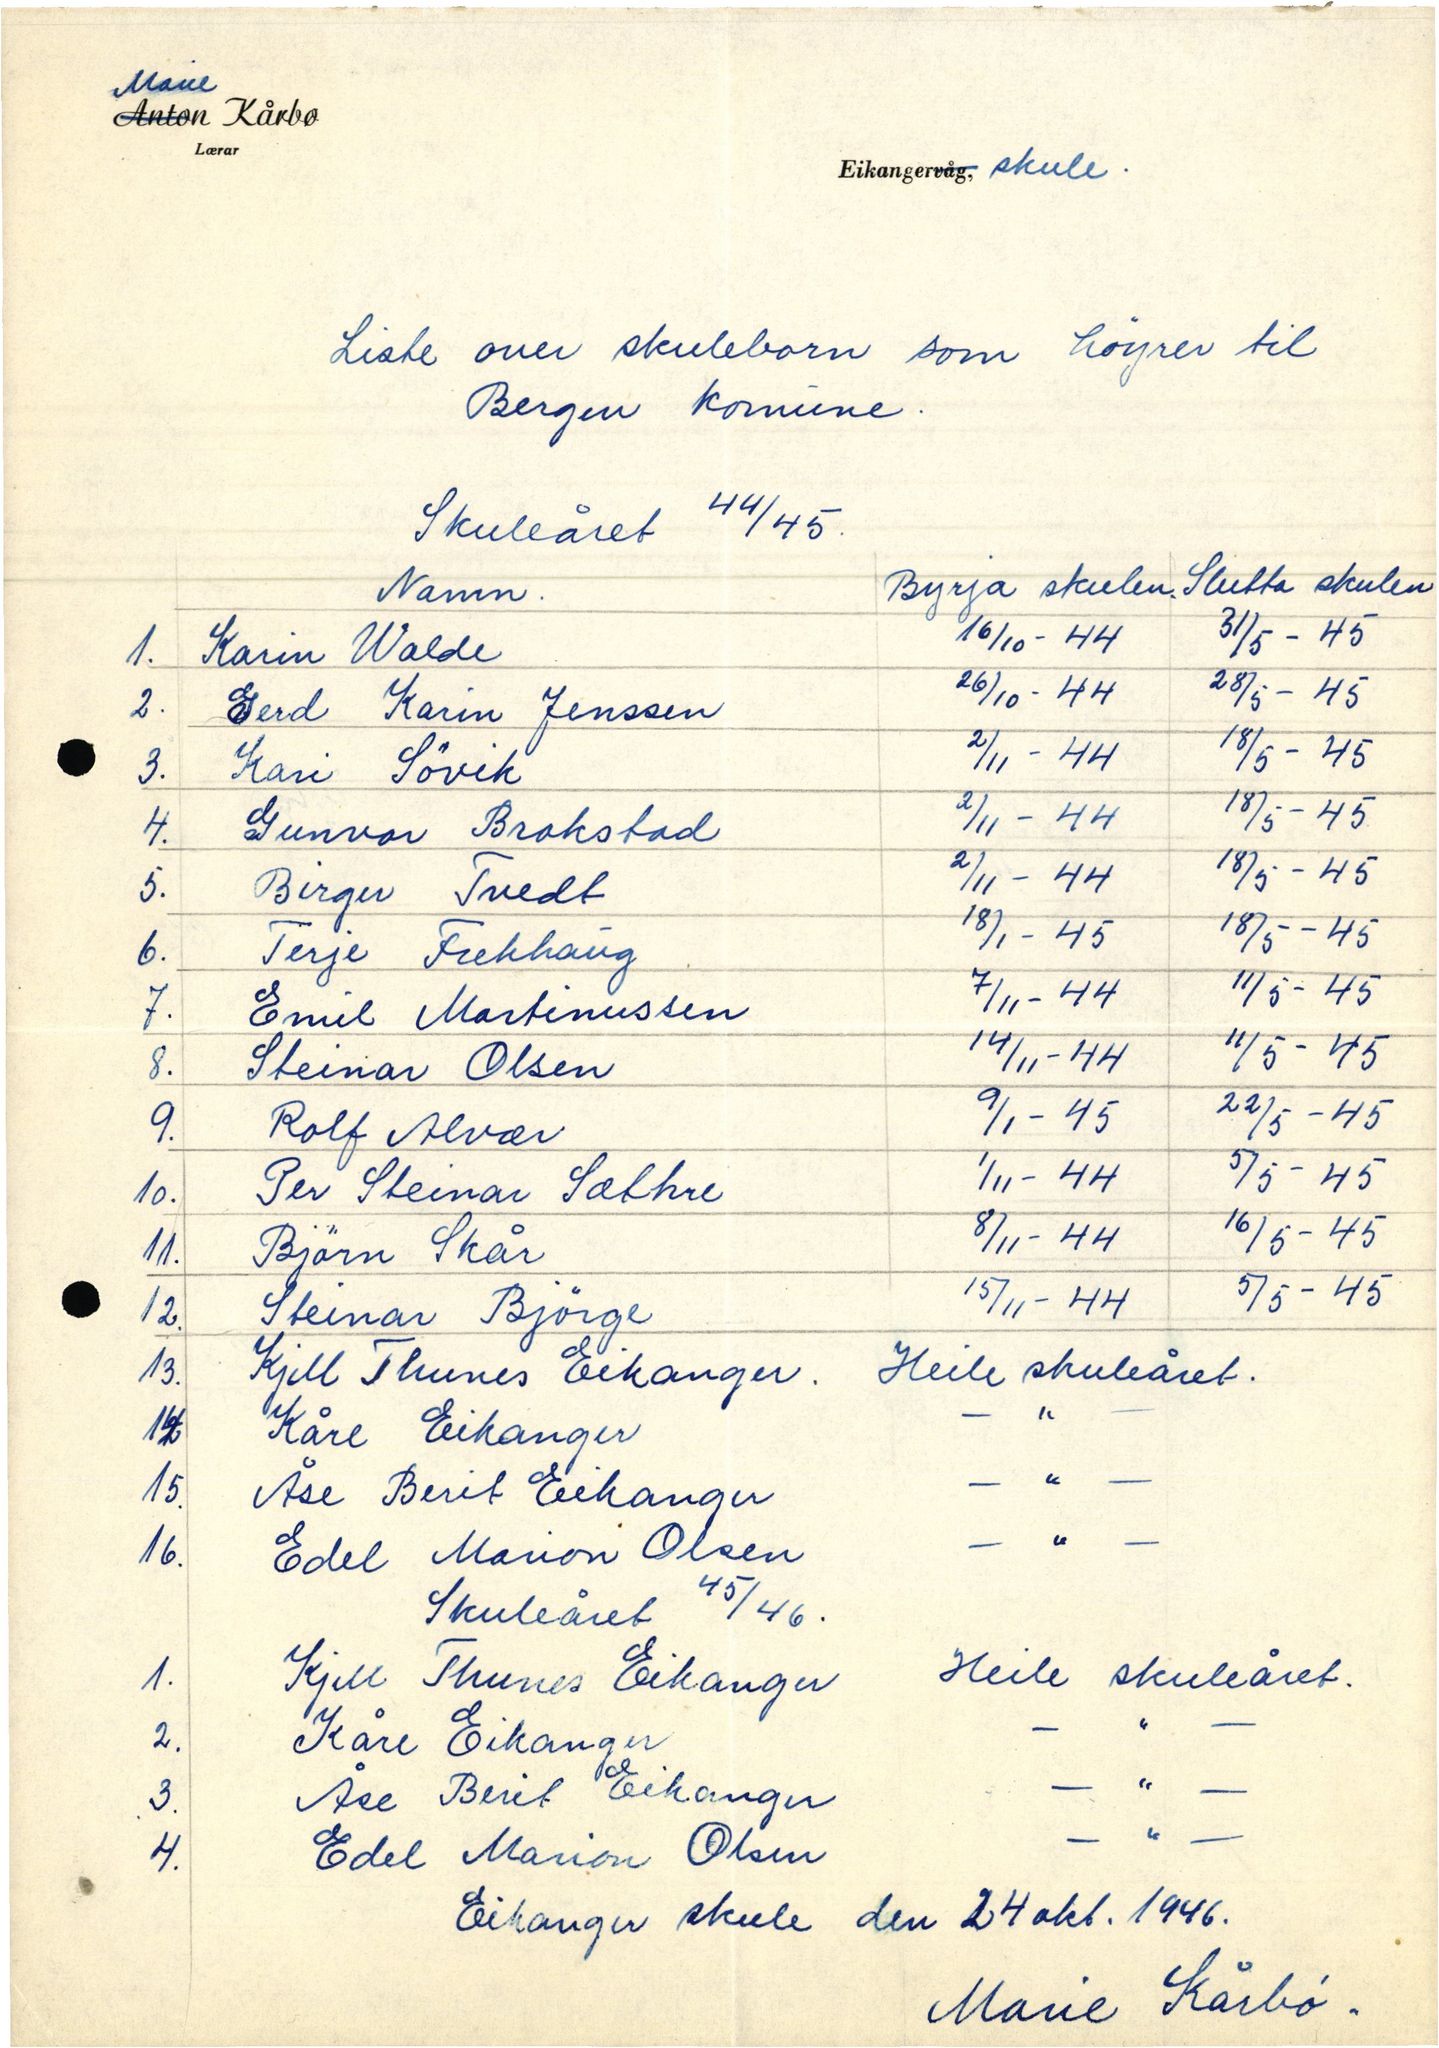 Marie
Anton Kårbø
Lærar
Eikangervåg, skule.
Liste over skuleborn som höyrer til
Bergen komune.
Skuleåret 44/45.
Namn. Byrja skulen. Slutta skulen
1. Karin Walde 16/10 - 44 31/5 - 45
2. Gerd Karin Jenssen 26/10 - 44 28/5 - 45
3. Kari Sövik 2/11 - 44 18/5 - 45
4. Gunvor Brakstad 2/11 - 44 18/5 - 45
5. Birger Tvedt 2/11 - 44 18/5 - 45
6. Terje Frekhaug 18/1 - 45 18/5 - 45
7. Emil Martinussen 7/11 - 44 11/5 - 45
8. Steinar Olsen 14/11 - 44 11/5 - 45
9. Rolf Alvær 9/1 - 45 22/5 - 45
10. Per Steinar Sæthre 1/11 - 44 5/5 - 45
11. Björn Skår 8/11 - 44 16/5 - 45
12. Steinar Björge 15/11 - 44 5/5 - 45
13. Kjell Thunes Eikanger. Heile skuleåret.
14 Kåre Eikanger — " —
15. Åse Berit Eikanger — " —
16. Edel Marion Olsen — " —
Skuleåret 45/46.
1. Kjell Thunes Eikanger Heile skuleåret.
2. Kåre Eikanger — " —
3. Åse Berit Eikanger — " —
4. Edel Marion Olsen — " —
Eikanger skule den 24 okt. 1946.
Marie Kårbö.